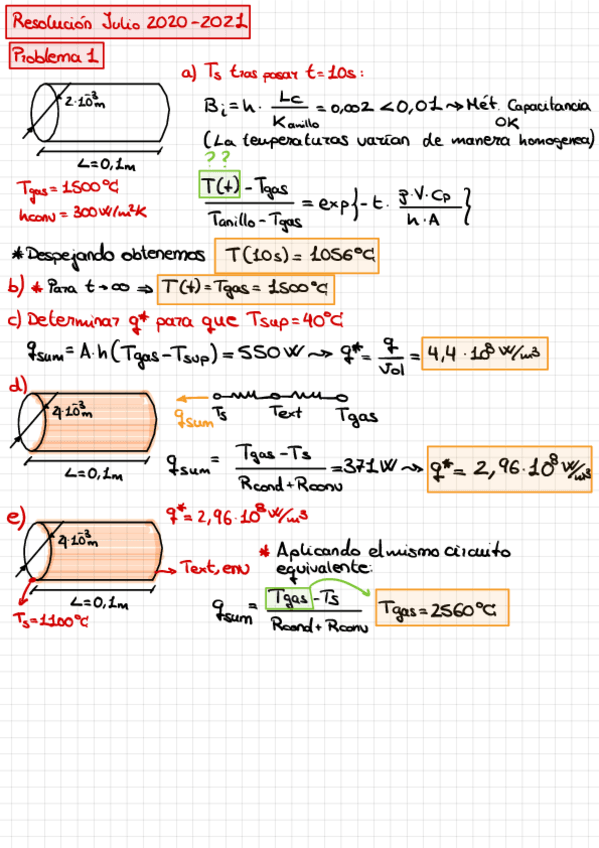 Resolución Julio 2020-2021
Problema 1
2·10⁻³m
L=0,1m
Tgas = 1500ºC
hconv = 300W/m²K
a) Ts tras pasar t=10s:
Bi = h · Lc / Kanillo = 0,002 < 0,01 → Mét. Capacitancia OK
(La temperaturas varían de manera homogenea)
??
T(t) - Tgas / Tanillo - Tgas = exp{-t · ρ·V·Cp / h·A}
* Despejando obtenemos T(10s) = 1056ºC
b) * Para t→∞ ⇒ T(t) = Tgas = 1500ºC
c) Determinar q* para que Tsup = 40ºC
qsum = A·h(Tgas - Tsup) = 550W → q* = q / Vol = 4,4·10⁸ W/m³
d)
4·10⁻³m
L=0,1m
qsum Ts Text Tgas
qsum = Tgas - Ts / Rcond + Rconv = 371W → q* = 2,96·10⁸ W/m³
e)
q* = 2,96·10⁸ W/m³
4·10⁻³m
Text, env
L=0,1m
Ts = 1100ºC
* Aplicando el mismo circuito
equivalente:
qsum = Tgas - Ts / Rcond + Rconv
Tgas = 2560ºC